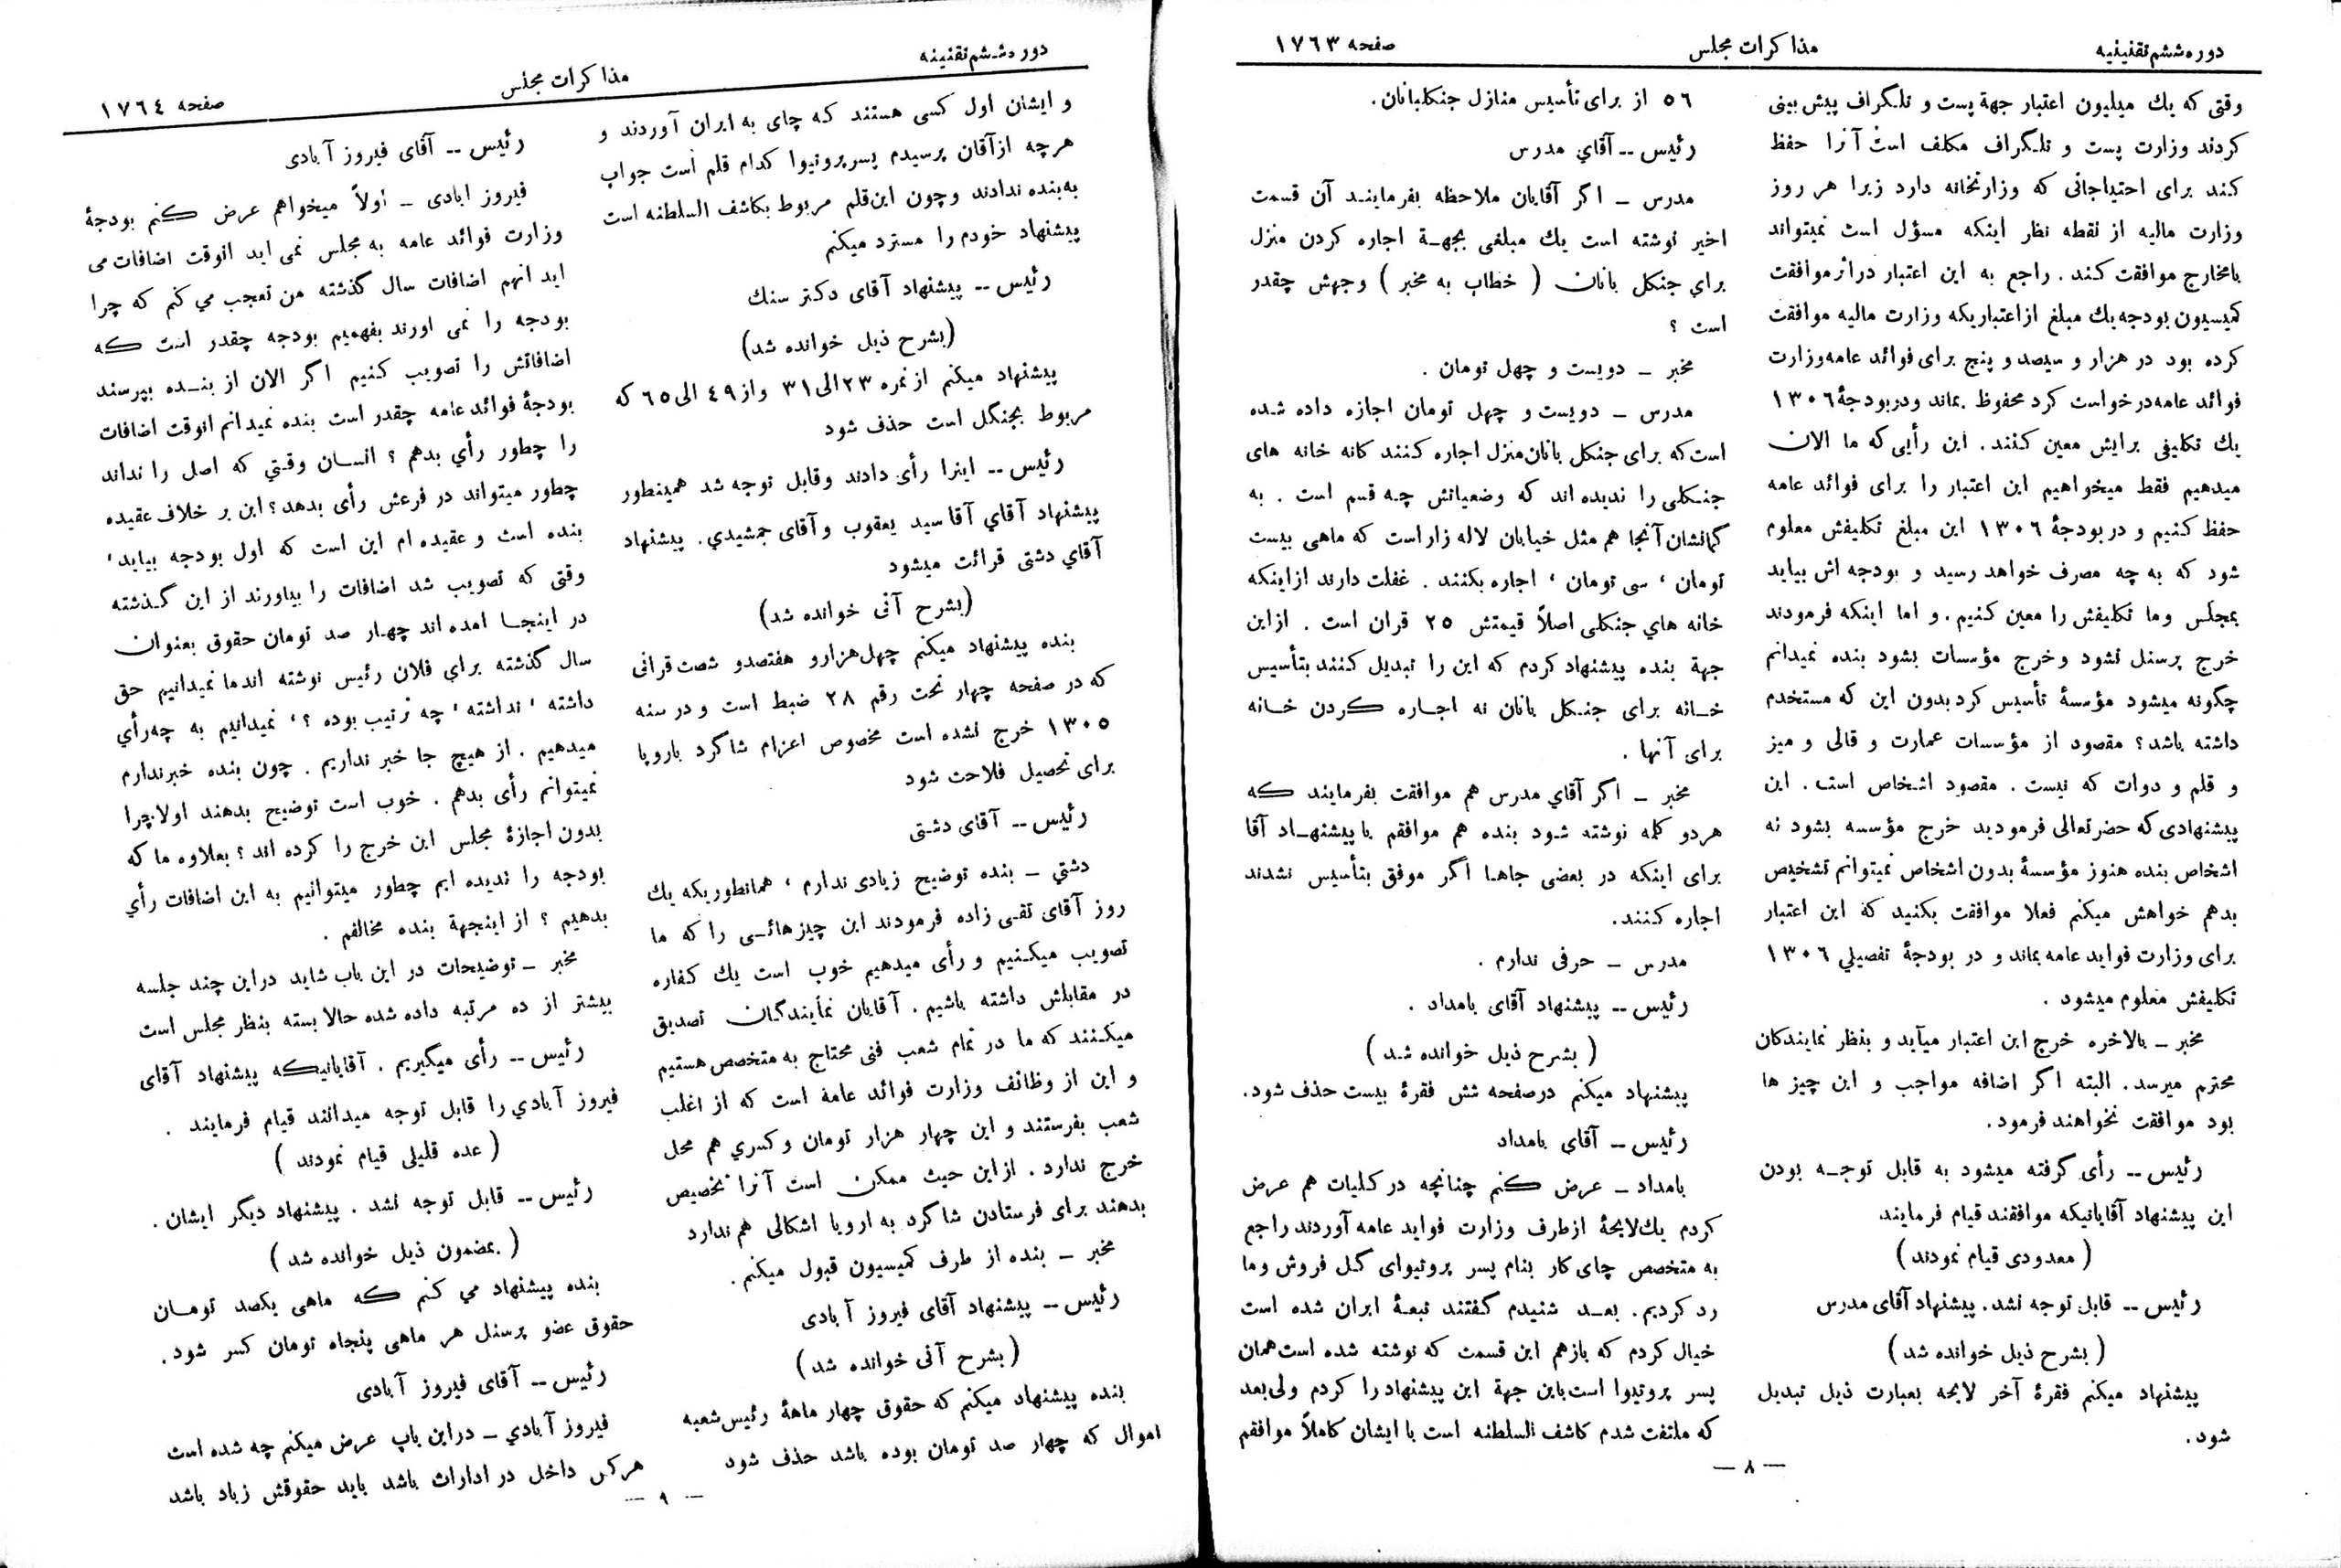 دوره ششم تقنینیه
مذاکرات مجلس
صفحه ۱۷۶۳
وقتی که یك میلیون اعتبار جهة پست و تلگراف پیش بینی
کردند وزارت پست و تلگراف مکلف است آنرا حفظ
کند برای احتیاجاتی که وزارتخانه دارد زیرا هر روز
وزارت مالیه از نقطه نظر اینکه مسؤل است نمیتواند
بامخارج موافقت کند . راجع به این اعتبار دراثر موافقت
کمیسیون بودجه یك مبلغ از اعتباریکه وزارت مالیه موافقت
کرده بود در هزار و سیصد و پنج برای فوائد عامه وزارت
فوائد عامه درخواست کرد محفوظ بماند ودر بودجهٔ ۱۳۰۶
یك تکلیفی برایش معین کنند . این رأیی که ما الان
میدهیم فقط میخواهیم این اعتبار را برای فوائد عامه
حفظ کنیم و در بودجهٔ ۱۳۰۶ این مبلغ تکلیفش معلوم
شود که به چه مصرف خواهد رسید و بودجه اش بیاید
بمجلس وما تکلیفش را معین کنیم . و اما اینکه فرمودند
خرج پرسنل نشود وخرج مؤسسات بشود بنده نمیدانم
چگونه میشود مؤسسهٔ تأسیس کرد بدون این که مستخدم
داشته باشد ؟ مقصود از مؤسسات عمارت و قالی و میز
و قلم و دوات که نیست . مقصود اشخاص است . این
پیشنهادی که حضرتعالی فرمودید خرج مؤسسه بشود نه
اشخاص بنده هنوز مؤسسهٔ بدون اشخاص نمیتوانم تشخیص
بدهم خواهش میکنم فعلا موافقت بکنید که این اعتبار
برای وزارت فواید عامه بماند و در بودجهٔ تفصیلي ۱۳۰۶
تکلیفش معلوم میشود .
مخبر ـ بالاخره خرج این اعتبار میآید و بنظر نمایندکان
محترم میرسد . البته اگر اضافه مواجب و این چیز ها
بود موافقت نخواهند فرمود .
رئیس ــ رأی گرفته میشود به قابل توجـه بودن
این پیشنهاد آقایانیکه موافقند قیام فرمایند
( معدودی قیام نمودند )
رئیس ــ قابل توجه نشد . پیشنهاد آقای مدرس
( بشرح ذیل خوانده شد )
پیشنهاد میکنم فقرهٔ آخر لایحه بعبارت ذیل تبدیل
شود .
٥٦ از برای تأسیس منازل جنکلبانان .
رئیس ــ آقاي مدرس
مدرس ـ اگر آقایان ملاحظه بفرماینـد آن قسمت
اخیر نوشته است یك مبلغی بجهـة اجاره کردن منزل
براي جنکل بانان ( خطاب به مخبر ) وجهش چقدر
است ؟
مخبر ـ دویست و چهل تومان .
مدرس ـ دویست و چهل تومان اجازه داده شده
است که برای جنکل بانان منزل اجاره کنند کانه خانه های
جنـکلی را ندیده اند که وضعیاتش چـه قسم است . به
گمانشان آنجا هم مثل خیابان لاله زار است که ماهی بیست
تومان ، سی تومان ، اجاره بکنند . غفلت دارند از اینکه
خانه هاي جنکلی اصلاً قیمتش ٢٥ قران است . ازاین
جهة بنده پیشنهاد کردم که این را تبدیل کنند بتأسیس
خـانه برای جنـکل بانان نه اجـاره کردن خـانه
برای آنها .
مخبر ـ اکر آقاي مدرس هم موافقت بفرمایند که
هردو کله نوشته شود بنده هم موافقم با پیشنهـاد آقا
برای اینکه در بعضی جاهـا اگر موفق بتأسیس نشدند
اجاره کنند .
مدرس ـ حرفی ندارم .
رئیس ــ پیشنهاد آقای بامداد .
( بشرح ذیل خوانده شـد )
پیشنهاد میکنم درصفحه شش فقرهٔ بیست حذف شود .
رئیس ــ آقاي بامداد
بامداد ـ عرض کنم چنانچه در کلیات هم عرض
کردم یك لایحهٔ ازطرف وزارت فواید عامه آوردند راجع
به متخصص چای کار بنام پسر پرونیوای گل فروش وما
رد کردیم . بعـد شنیدم گفتند تبعهٔ ایران شده است
خیال کردم که بازهم این قسمت که نوشته شده است همان
پسر پرونیوا است باین جهة این پیشنهاد را کردم ولی بعد
که ملتفت شدم کاشف السلطنه است با ایشان کاملاً موافقم
— ۸ —
دوره ششم تقنینه
مذاکرات مجلس
صفحه ۱۷٦٤
و ایشان اول کسی هستند که چای به ایران آوردند و
هرچه ازآقان پرسیدم پسرپرونیوا کدام قلم است جواب
به بنده ندادند وچون این قلم مربوط بکاشف السلطنه است
پیشنهاد خودم را مسترد میکنم
رئیس ــ پیشنهاد آقای دکتر سنك
(بشرح ذیل خوانده شد)
پیشنهاد میکنم از نمره ۲۳ الی ۳۱ واز ٤۹ الی ٦٥ که
مربوط بجنگل است حذف شود
رئیس ــ اینرا رأی دادند وقابل توجه شد همینطور
پیشنهاد آقاي آقا سید یعقوب و آقای جمشیدي . پیشنهاد
آقاي دشتی قرائت میشود
(بشرح آتی خوانده شد)
بنده پیشنهاد میکنم چهل هزارو هفتصدو شصت قرانی
که در صفحه چهار تحت رقم ۲۸ ضبط است و در سنه
۱۳۰۵ خرج نشده است مخصوص اعزام شاکرد باروپا
برای تحصیل فلاحت شود
رئیس ــ آقای دشتی
دشتي ـ بنده توضیح زیادی ندارم ، همانطوریکه یك
روز آقای تقی زاده فرمودند این چیزهائی را که ما
تصویب میکنیم و رأی میدهیم خوب است یك کفاره
در مقابلش داشته باشیم . آقایان نمایندگان تصدیق
میکنند که ما در تمام شعب فنی محتاج به متخصص هستیم
و این از وظائف وزارت فوائد عامه است که از اغلب
شعب بفرستند و این چهار هزار تومان و کسري هم محل
خرج ندارد . ازاین حیث ممکن است آنرا تخصیص
بدهند برای فرستادن شاکرد به اروپا اشکالی هم ندارد
مخبر ـ بنده از طرف کمیسیون قبول میکنم .
رئیس ــ پیشنهاد آقای فیروز آبادی
(بشرح آتی خوانده شد)
بنده پیشنهاد میکنم که حقوق چهار ماههٔ رئیس شعبه
اموال که چهار صد تومان بوده باشد حذف شود
رئیس ــ آقای فیروز آبادی
فیروز ابادی ـ اولاً میخواهم عرض کنم بودجهٔ
وزارت فوائد عامه به مجلس نمی اید انوقت اضافات می
اید انهم اضافات سال گذشته من تعجب مي کنم که چرا
بودجه را نمی اورند بفهمیم بودجه چقدر است که
اضافاتش را تصویب کنیم اگر الان از بنـده بپرسند
بودجهٔ فوائد عامه چقدر است بنده نمیدانم انوقت اضافات
را چطور رأي بدهم ؟ انسان وقتي که اصل را نداند
چطور میتواند در فرعش رأی بدهد؟ این بر خلاف عقیده
بنده است و عقیده ام این است که اول بودجه بیاید ،
وقتی که تصویب شد اضافات را بیاورند از این گذشته
در اینجـا امده اند چهار صد تومان حقوق بعنوان
سال گذشته براي فلان رئیس نوشته اندما نمیدانیم حق
داشته ، نداشته ، چه ترتیب بوده ؟، نمیدانیم به چه رأي
میدهیم . از هیچ جا خبر نداریم . چون بنده خبرندارم
نمیتوانم رأی بدهم . خوب است توضیح بدهند اولا چرا
بدون اجازهٔ مجلس این خرج را کرده اند ؟ بعلاوه ما که
بودجه را ندیده ایم چطور میتوانیم به این اضافات رأي
بدهیم ؟ از اینجهة بنده مخالفم .
مخبر ـ توضیحات در این باب شاید دراین چند جلسه
بیشتر از ده مرتبه داده شده حالا بسته بنظر مجلس است
رئیس ــ رأی میگیریم . آقایانیکه پیشنهاد آقای
فیروز آبادي را قابل توجه میدانند قیام فرمایند .
( عده قلیلی قیام نمودند )
رئیس ــ قابل توجه نشد . پیشنهاد دیگر ایشان .
( بمضمون ذیل خوانده شد )
بنده پیشنهاد مي کنم که ماهی یکصد تومـان
حقوق عضو پرسنل هر ماهی پنجاه تومان کسر شود .
رئیس ــ آقای فیروز آبادی
فیروز آبادي ـ دراین باب عرض میکنم چه شده است
هرکس داخل در ادارات باشد باید حقوقش زیاد باشد
— ۹ —